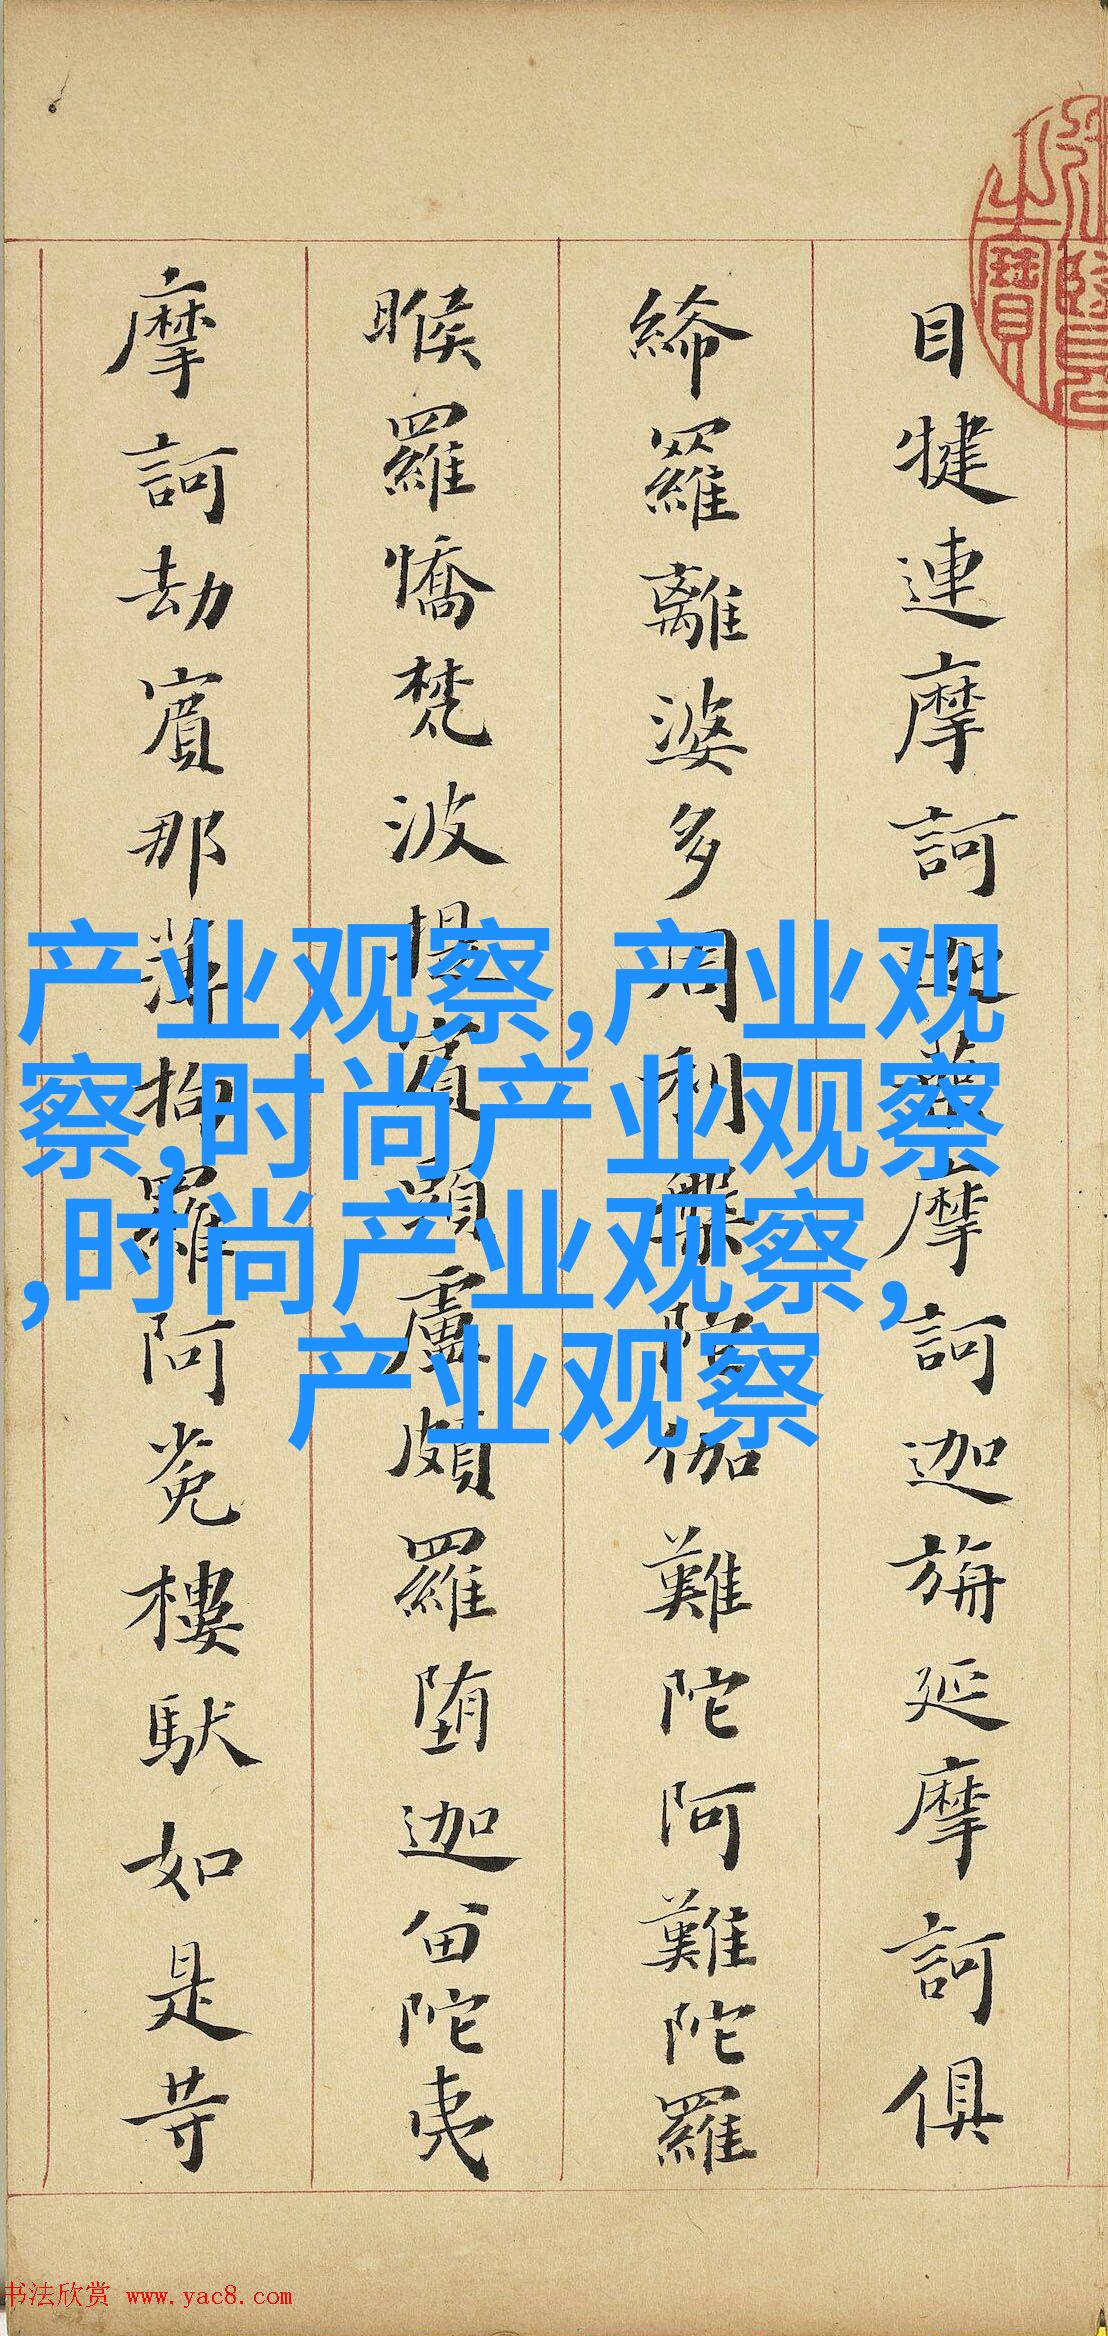 目犍連摩訶迦葉摩訶迦旃延摩訶俱
絺羅離婆多周利槃陀伽難陀阿難陀羅
睺羅憍梵波提賓頭盧頗羅堕迦留陀夷
摩訶劫賓那薄拘羅阿㝹樓馱如是等
产业观察,产业观
察,时尚产业观察
,时尚产业观察,
产业观察
书法欣赏 www.yac8.com